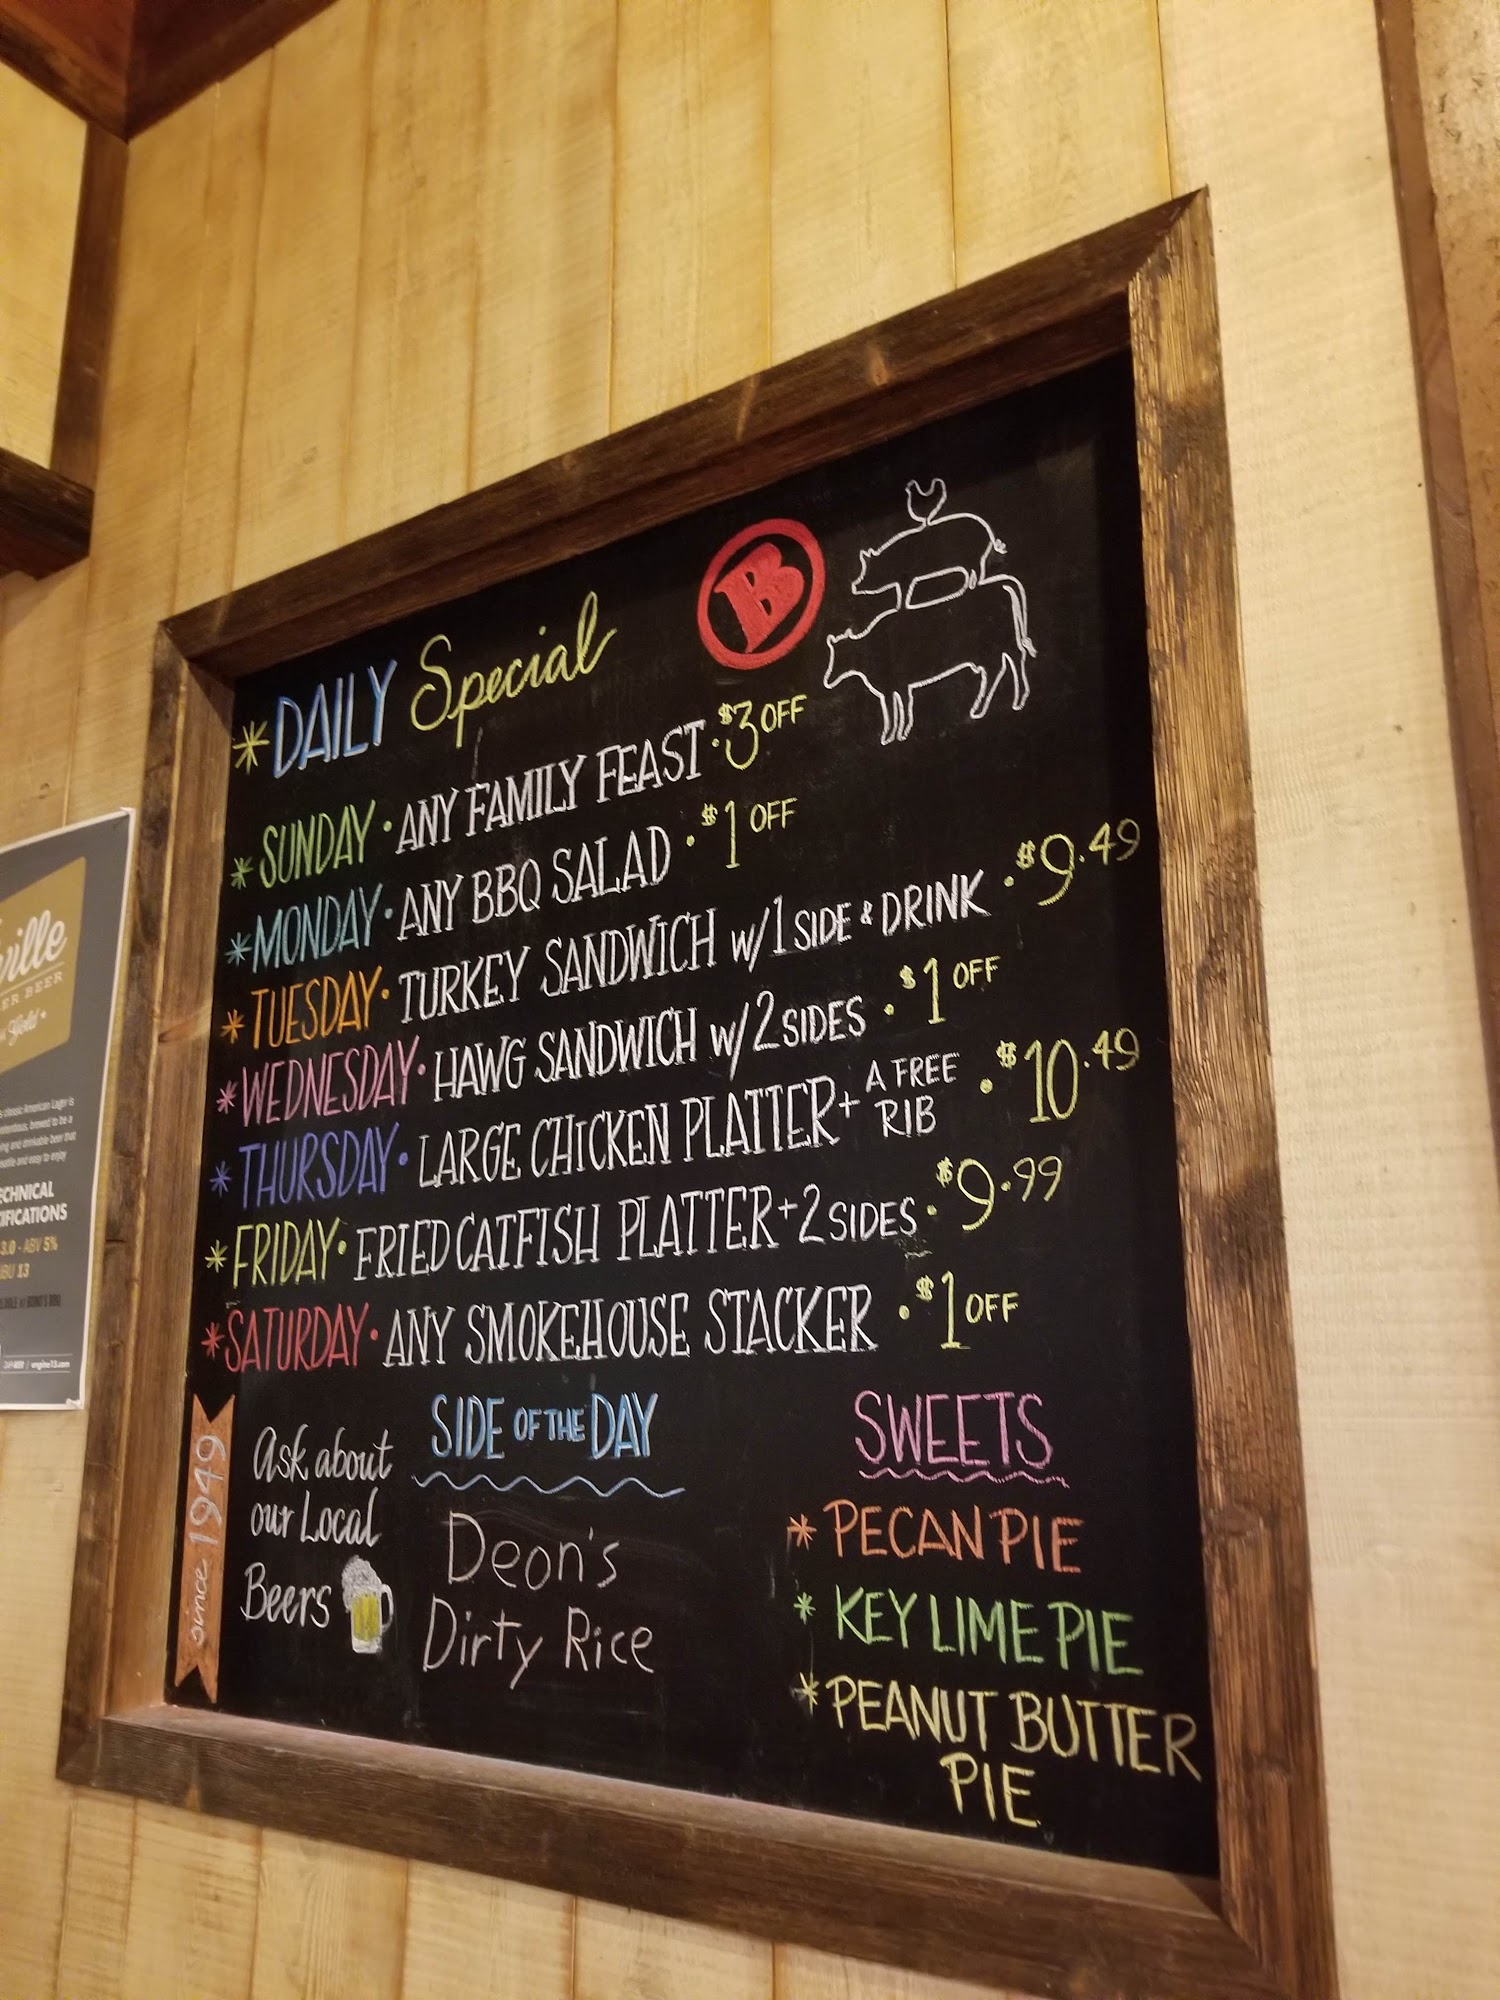 * DAILY Special
B
* SUNDAY • ANY FAMILY FEAST • $3 OFF
* MONDAY • ANY BBQ SALAD • $1 OFF
* TUESDAY • TURKEY SANDWICH w/1 SIDE & DRINK • $9.49
* WEDNESDAY • HAWG SANDWICH w/2 SIDES • $1 OFF
* THURSDAY • LARGE CHICKEN PLATTER + A FREE RIB • $10.49
* FRIDAY • FRIED CATFISH PLATTER + 2 SIDES • $9.99
* SATURDAY • ANY SMOKEHOUSE STACKER • $1 OFF
since 1949
Ask about
our Local
Beers
SIDE OF THE DAY
Deon's
Dirty Rice
SWEETS
* PECAN PIE
* KEY LIME PIE
* PEANUT BUTTER
PIE
ville
ER BEER
Gold
classic American Lager is
brewed to be a
and drinkable beer that
and easy to enjoy
3.0 - ABV 5%
13
engine15.com